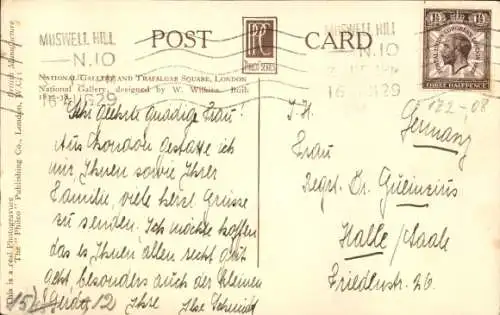 MUSWELL HILL
N.10
1929
POST CARD
MUSWELL HILL
N.10
1929
POSTAL UNION CONGRESS LONDON
1½ 1½
THREE HALFPENCE
PHILCO SERIES
NATIONAL GALLERY AND TRAFALGAR SQUARE, LONDON
National Gallery, designed by W. Wilkins. Built
This is a real Photogravure
The "Philco" Publishing Co., London, W.C.1
British Manufacture
Sehr geehrte gnädige Frau!
Aus London gestatte ich
mir Ihnen sowie Ihrer
Familie, viele herzl. Grüsse
zu senden. Ich möchte hoffen
das es Ihnen allen recht gut
geht besonders auch der kleinen
Ihre Ilse Schmidt
15/8
12
122-08
Germany
I.H.
Frau
Regr. Dr. Gueinzius
Halle/Saale
Friedenstr. 26